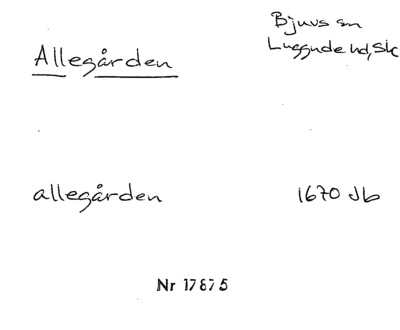 Bjuvs sn
Allegården
Luggude hd, Sk
allegården
1670 Jb
Nr 17875